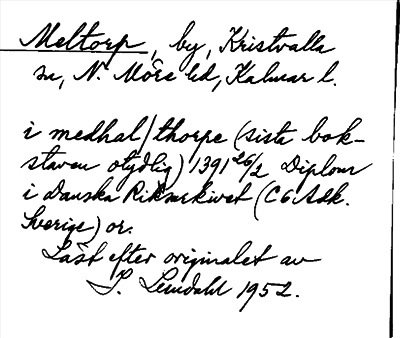 Meltorp, by, Kristvalla
sn, N. Möre hd, Kalmar l.
i medhal/thorpe (sista bok-
staven otydlig) 1391 26/2 Diplom
i Danska Riksarkivet (C6 Adk.
Sverige) or.
Läst efter originalet av
S. Lundahl 1952.